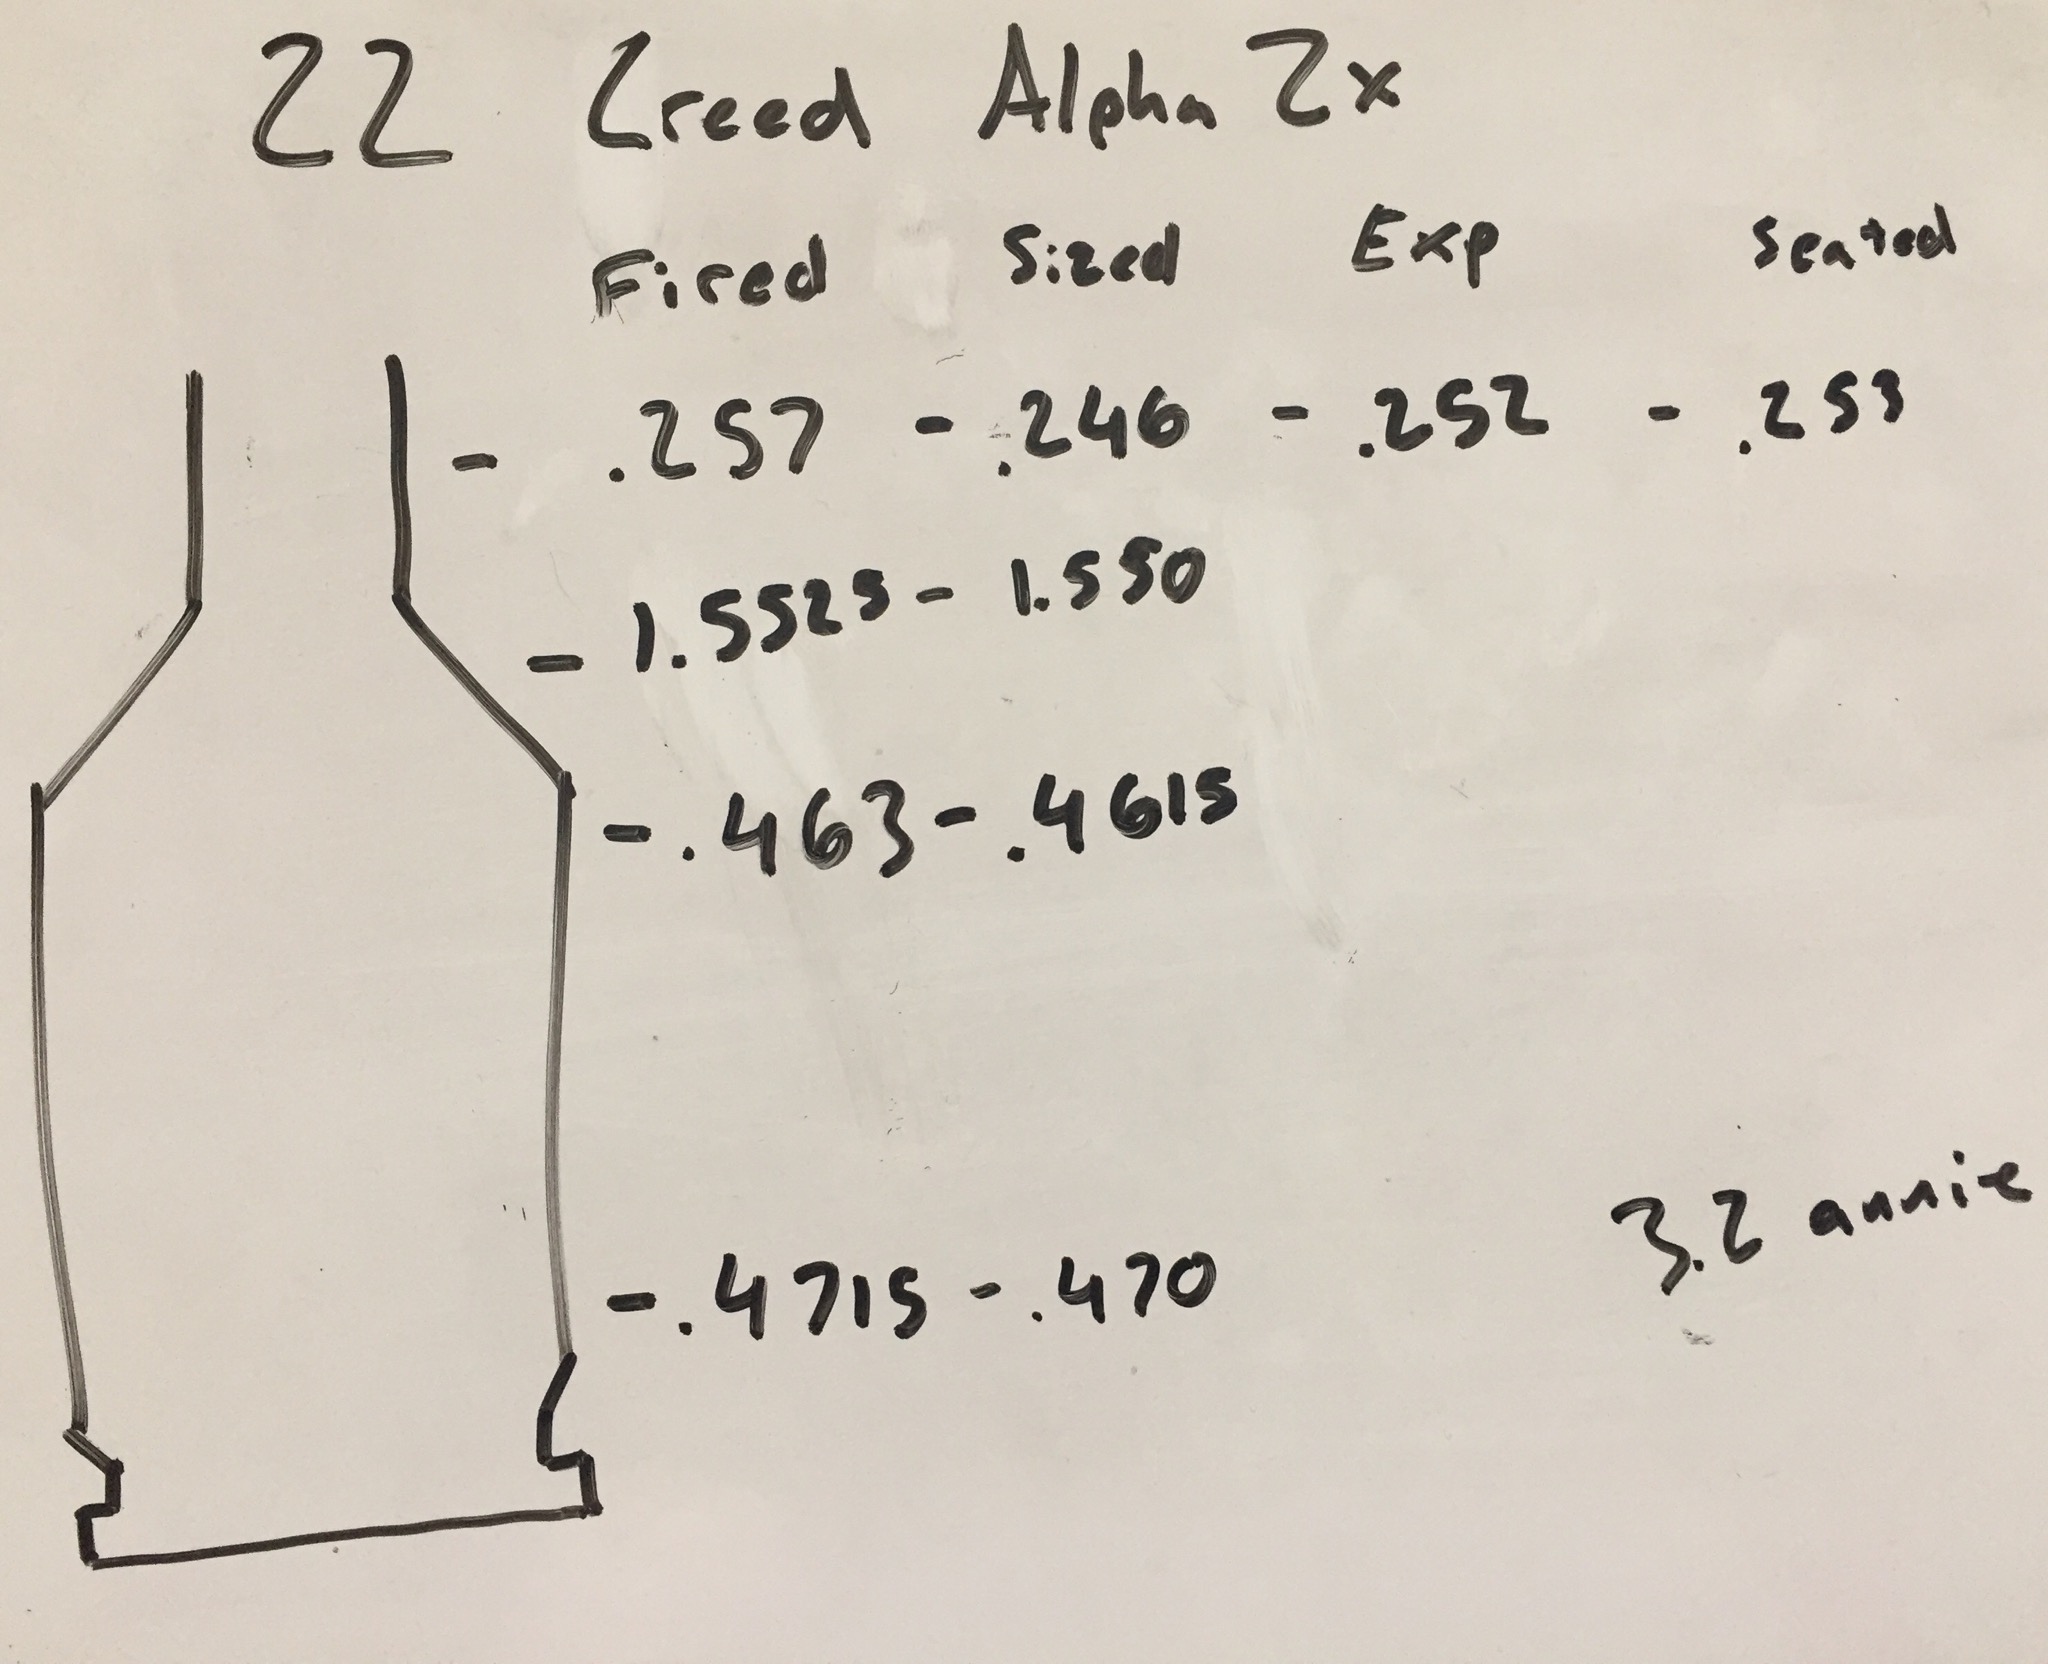 22 Creed Alpha 2x
Fired Sized Exp Seated
- .257 - .246 - .252 - .253
- 1.5525 - 1.550
- .463 - .4615
- .4715 - .470
3.2 annie